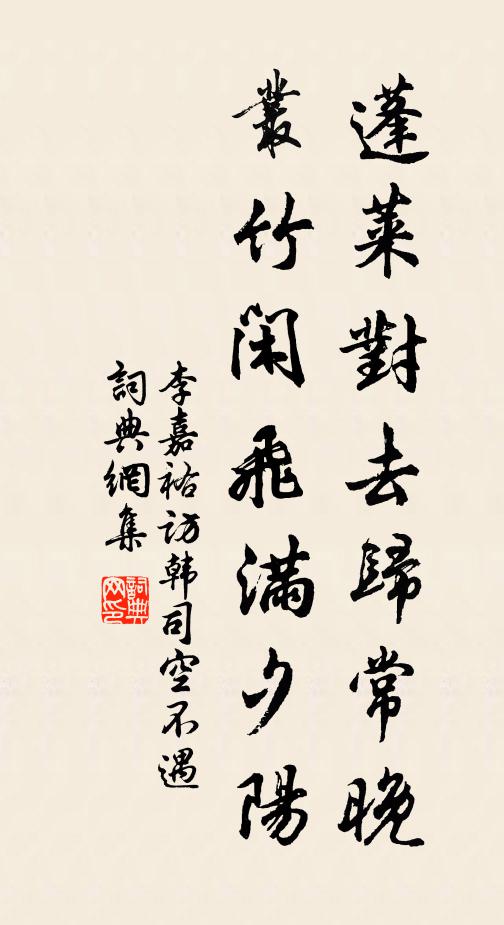 蓬萊對去歸常晚
叢竹閑飛滿夕陽
李嘉祐訪韩司空不遇
詞典網集
詞典
网印